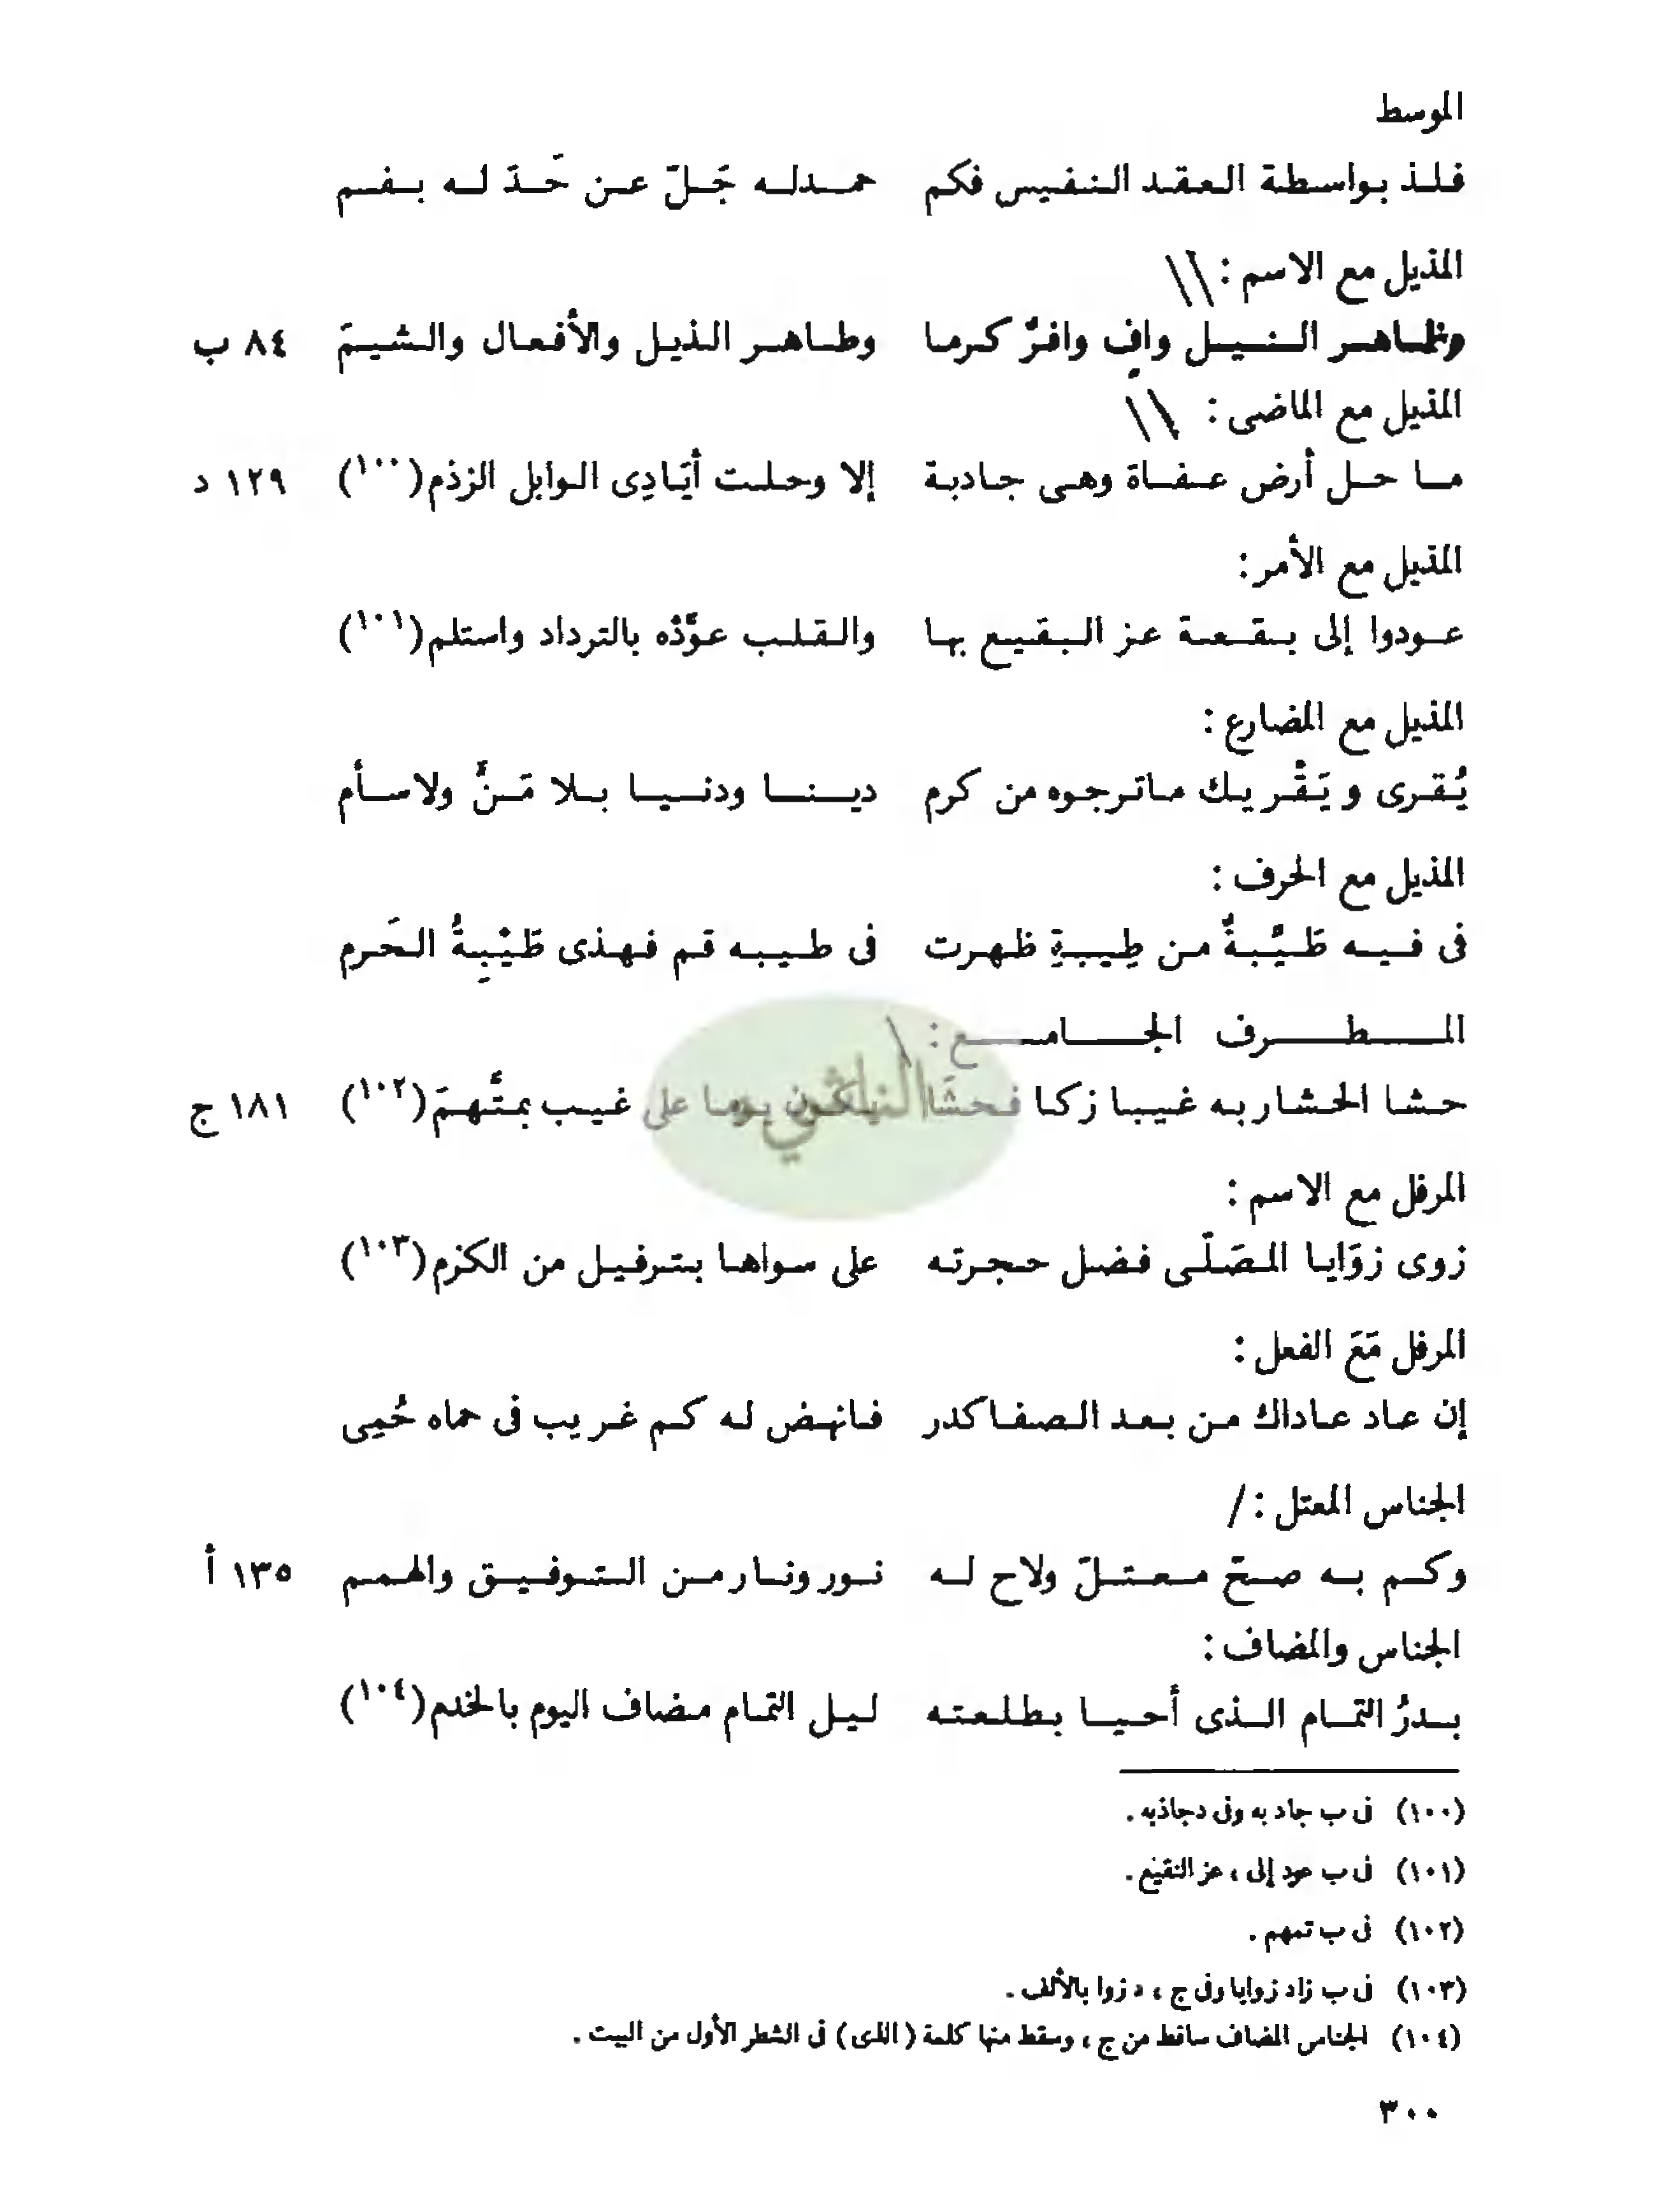 الموسط
فلذ بواسطة العقد النفيس فكم حمدله جَلّ عن حَدّ له بفم
المذيل مع الاسم : \\
وظاهر النيل وافٍ وافرٌ كرما وطاهر الذيل والأفعال والشيمَ ٨٤ ب
المذيل مع الماضى : \\
ما حل أرض عفاة وهى جادبة إلا وحلت أيَادِى الوابل الرذم(١٠٠) ١٢٩ د
المذيل مع الأمر:
عودوا إلى بقعة عز البقيع بها والقلب عوِّدْه بالترداد واستلم(١٠١)
المذيل مع المضارع :
يُقرى ويَقْريك ماترجوه من كرم دينا ودنيا بلا مَنٍّ ولاسأم
المذيل مع الحرف :
فى فيه طَيِّبةٌ من طِيبةِ ظهرت فى طيبه قم فهذى طَيْبِةُ الحَرم
المطرف الجامع : \
حشا الحشاربه غيبا زكا فحشَا يكون يوما على غيب بمتَّهمَ(١٠٢) ١٨١ ج
النيلوني
المرفل مع الاسم :
زوى زوَايا المصَلّى فضل حجرته على سواها بترفيل من الكرم(١٠٣)
المرفل مَعَ الفعل :
إن عاد عاداك من بعد الصفاكدر فانهض له كم غريب فى حماه حُمِى
الجناس المعتل : /
وكم به صحّ معتلّ ولاح له نور ونار من التوفيق والهمم ١٣٥ أ
الجناس والمضاف :
بدرُ التمام الذى أحيا بطلعته ليل التمام مضاف اليوم بالخدم(١٠٤)
(١٠٠) فى ب جاد به وفى دجاذبه .
(١٠١) فى ب عود إلى ، عز النقيْع .
(١٠٢) فى ب تمهم .
(١٠٣) فى ب زاد زوايا وفى ج ، د زوا بالألف .
(١٠٤) الجناس المضاف ساقط من ج ، وسقط منها كلمة ( الذى ) فى الشطر الأول من البيت .
٣٠٠